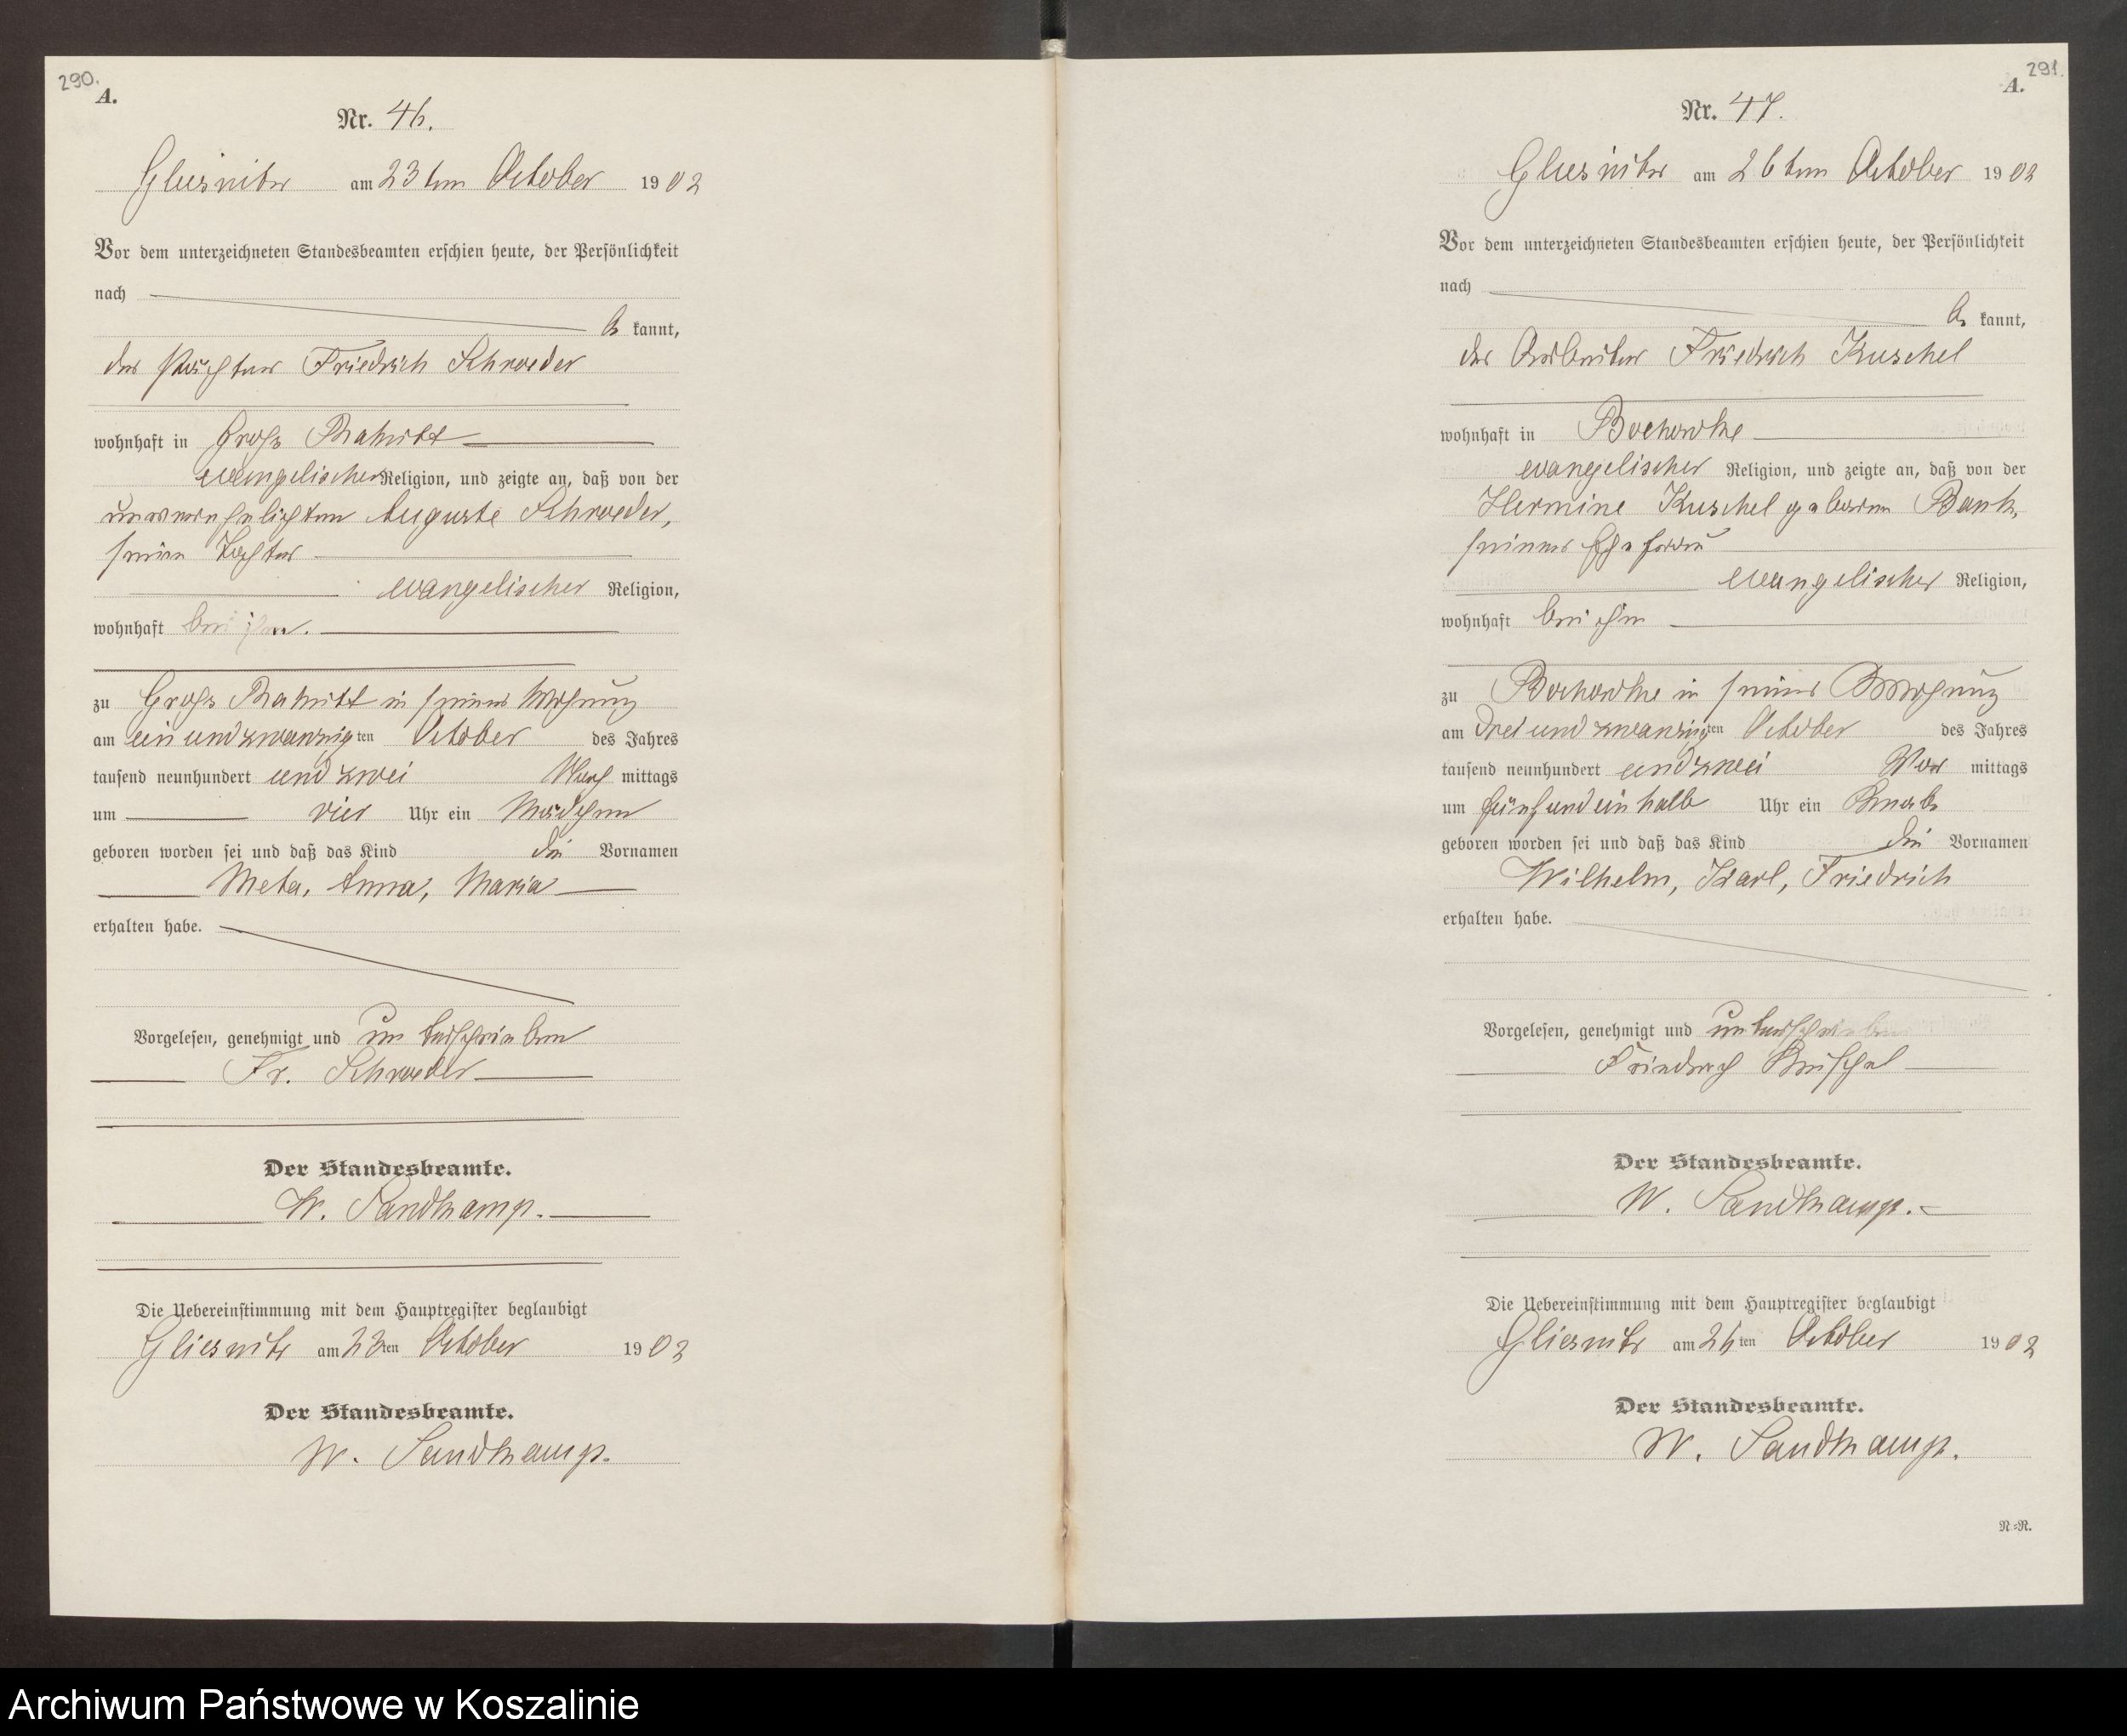 290.
A.
Nr. 46.
Gliesnitz am 23ten October 1902
Vor dem unterzeichneten Standesbeamten erschien heute, der Persönlichkeit
nach
be kannt,
der Pächter Friedrich Schroeder
wohnhaft in Groß Rakitt
evangelischer Religion, und zeigte an, daß von der
unverehelichten Auguste Schroeder,
seiner Tochter
evangelischer Religion,
wohnhaft bei ihm.
zu Groß Rakitt in seiner Wohnung
am ein und zwanzigten October des Jahres
tausend neunhundert und zwei Nach mittags
um vier Uhr ein Mädchen
geboren worden sei und daß das Kind die Vornamen
Meta, Anna, Maria
erhalten habe.
Vorgelesen, genehmigt und unterschrieben
Fr. Schroeder
Der Standesbeamte.
W. Sandkamp.
Die Uebereinstimmung mit dem Hauptregister beglaubigt
Gliesnitz am 23ten October 1902
Der Standesbeamte.
W. Sandkamp.
291.
A.
Nr. 47.
Gliesnitz am 26ten October 1902
Vor dem unterzeichneten Standesbeamten erschien heute, der Persönlichkeit
nach
be kannt,
der Arbeiter Friedrich Kuschel
wohnhaft in Bochowke
evangelischer Religion, und zeigte an, daß von der
Hermine Kuschel geborene Bank,
seiner Ehefrau
evangelischer Religion,
wohnhaft bei ihm
zu Bochowke in seiner Wohnung
am drei und zwanzigten October des Jahres
tausend neunhundert und zwei Vor mittags
um fünf und ein halb Uhr ein Knabe
geboren worden sei und daß das Kind die Vornamen
Wilhelm, Karl, Friedrich
erhalten habe.
Vorgelesen, genehmigt und unterschrieben
Friedrich Kuschel
Der Standesbeamte.
W. Sandkamp.
Die Uebereinstimmung mit dem Hauptregister beglaubigt
Gliesnitz am 26ten October 1902
Der Standesbeamte.
W. Sandkamp.
N.=R.
Archiwum Państwowe w Koszalinie